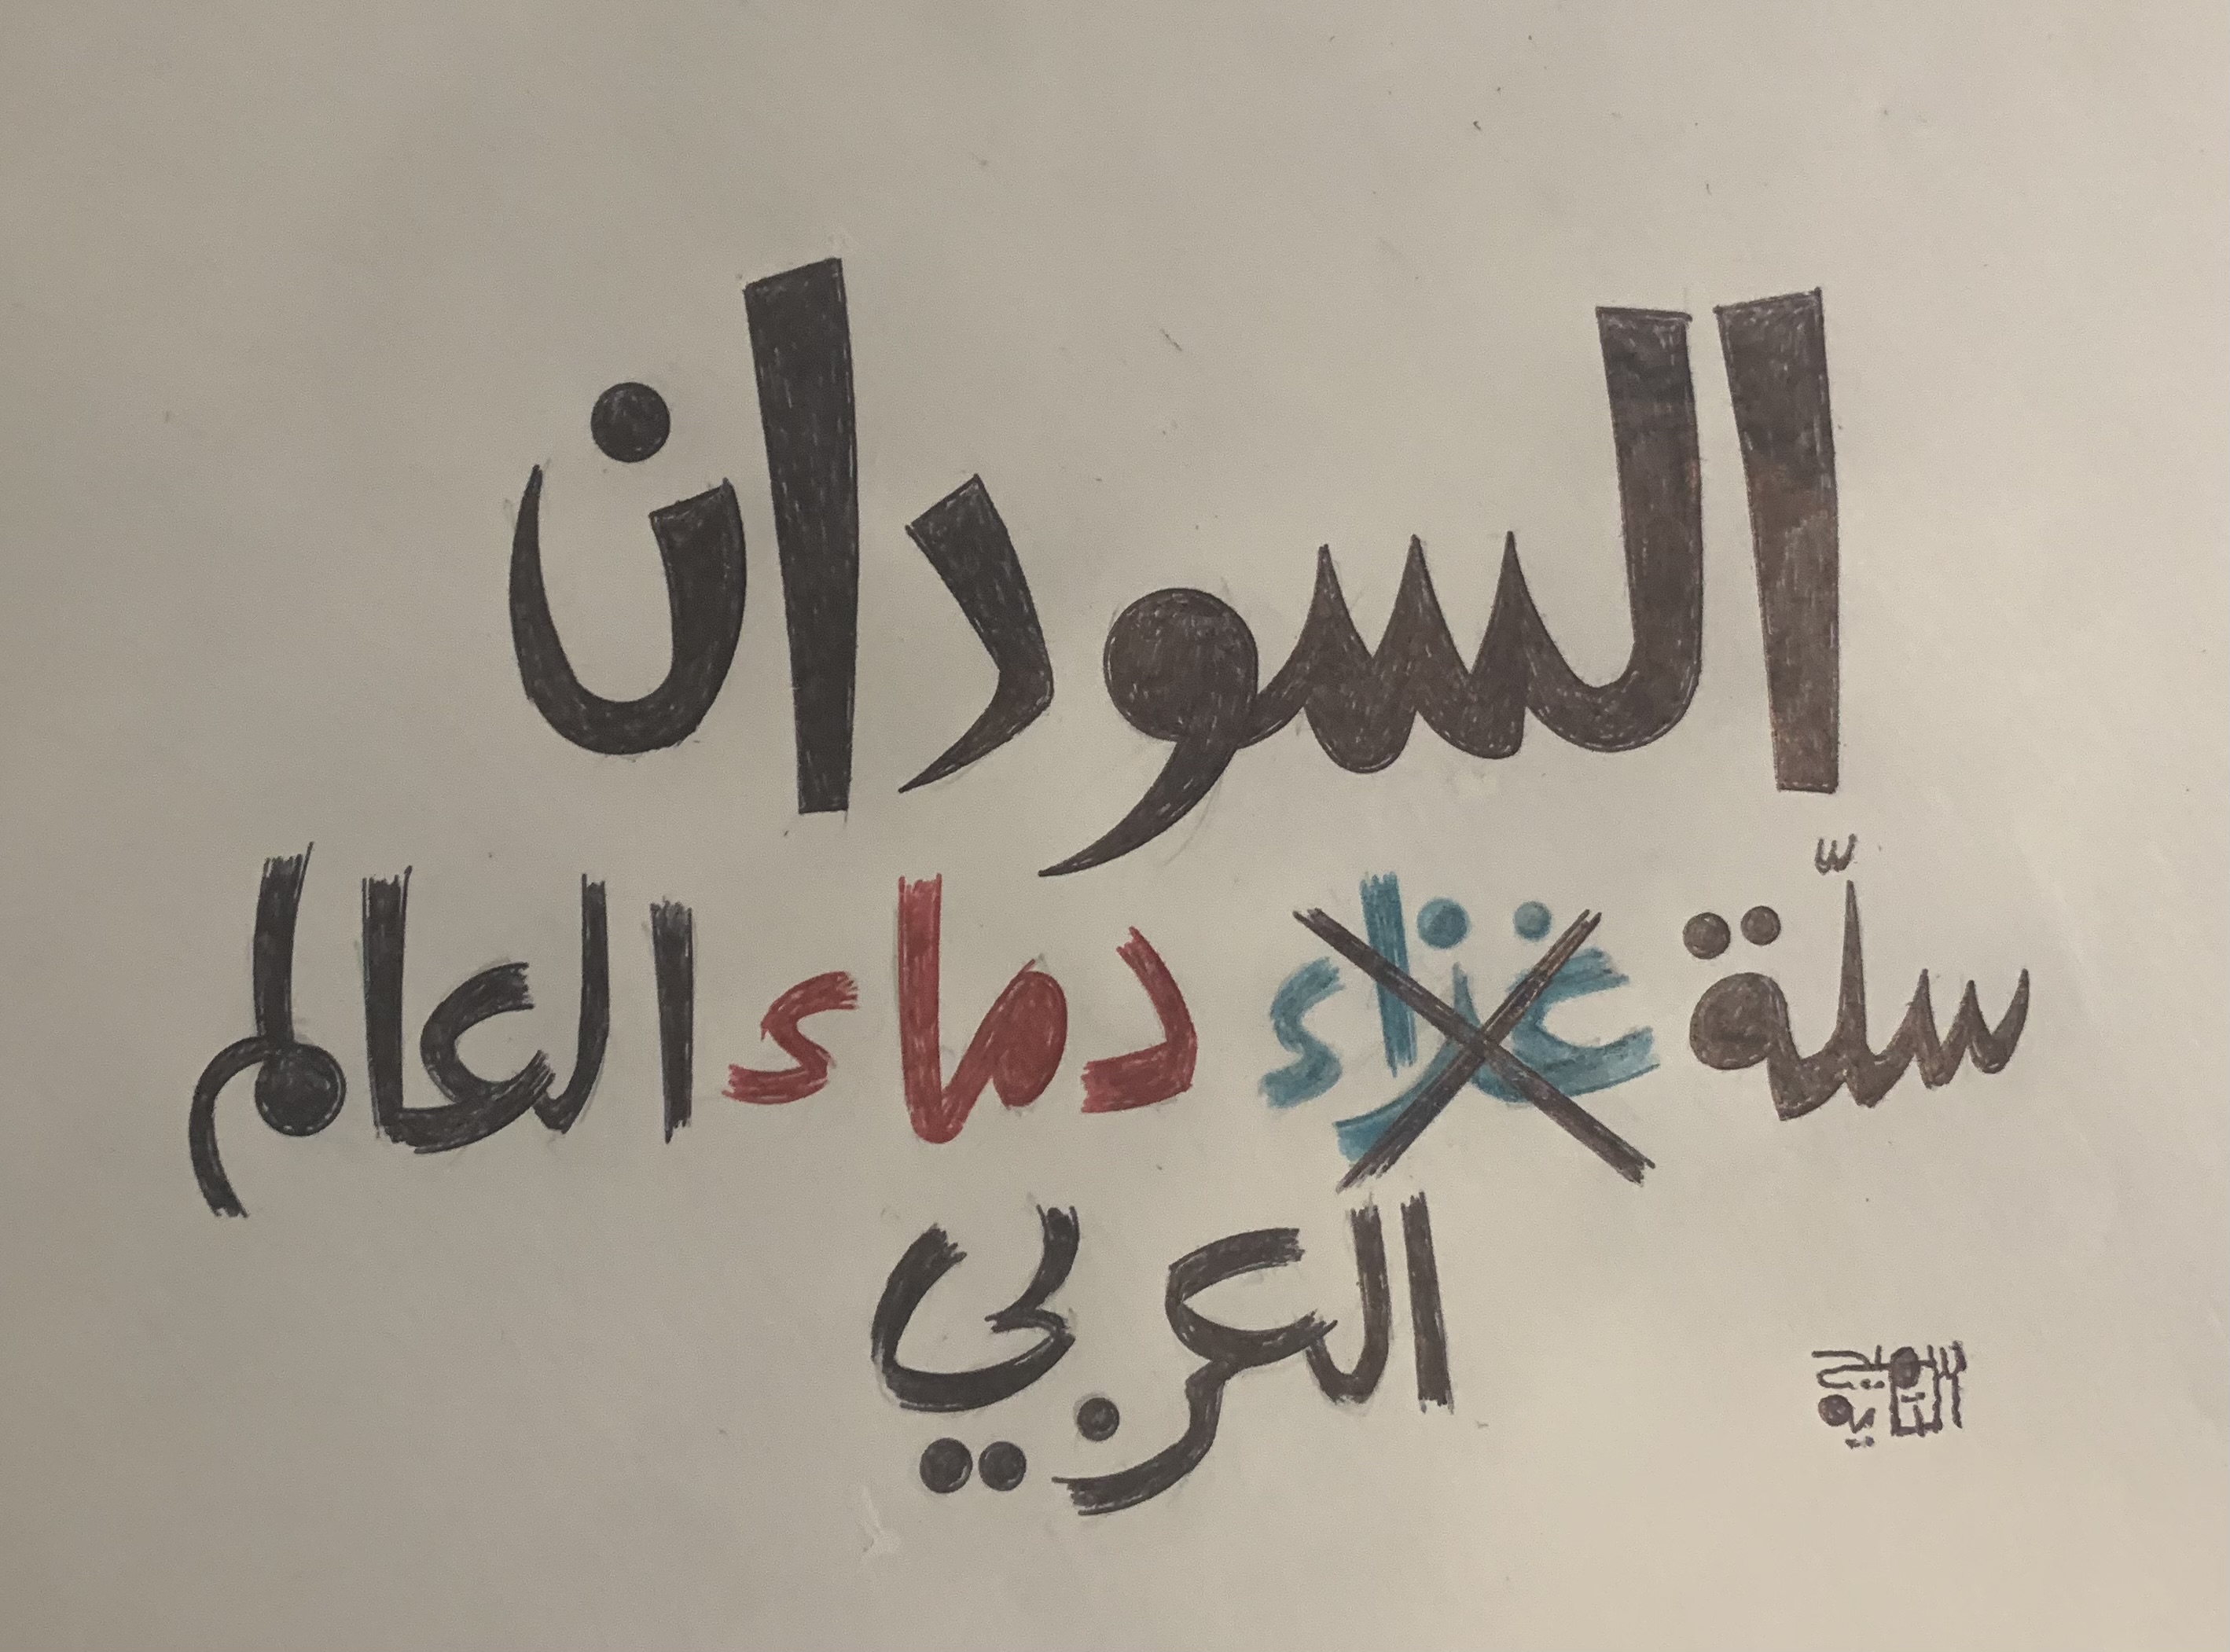 السودان
سلّة غذاء دماء العالم
العربي